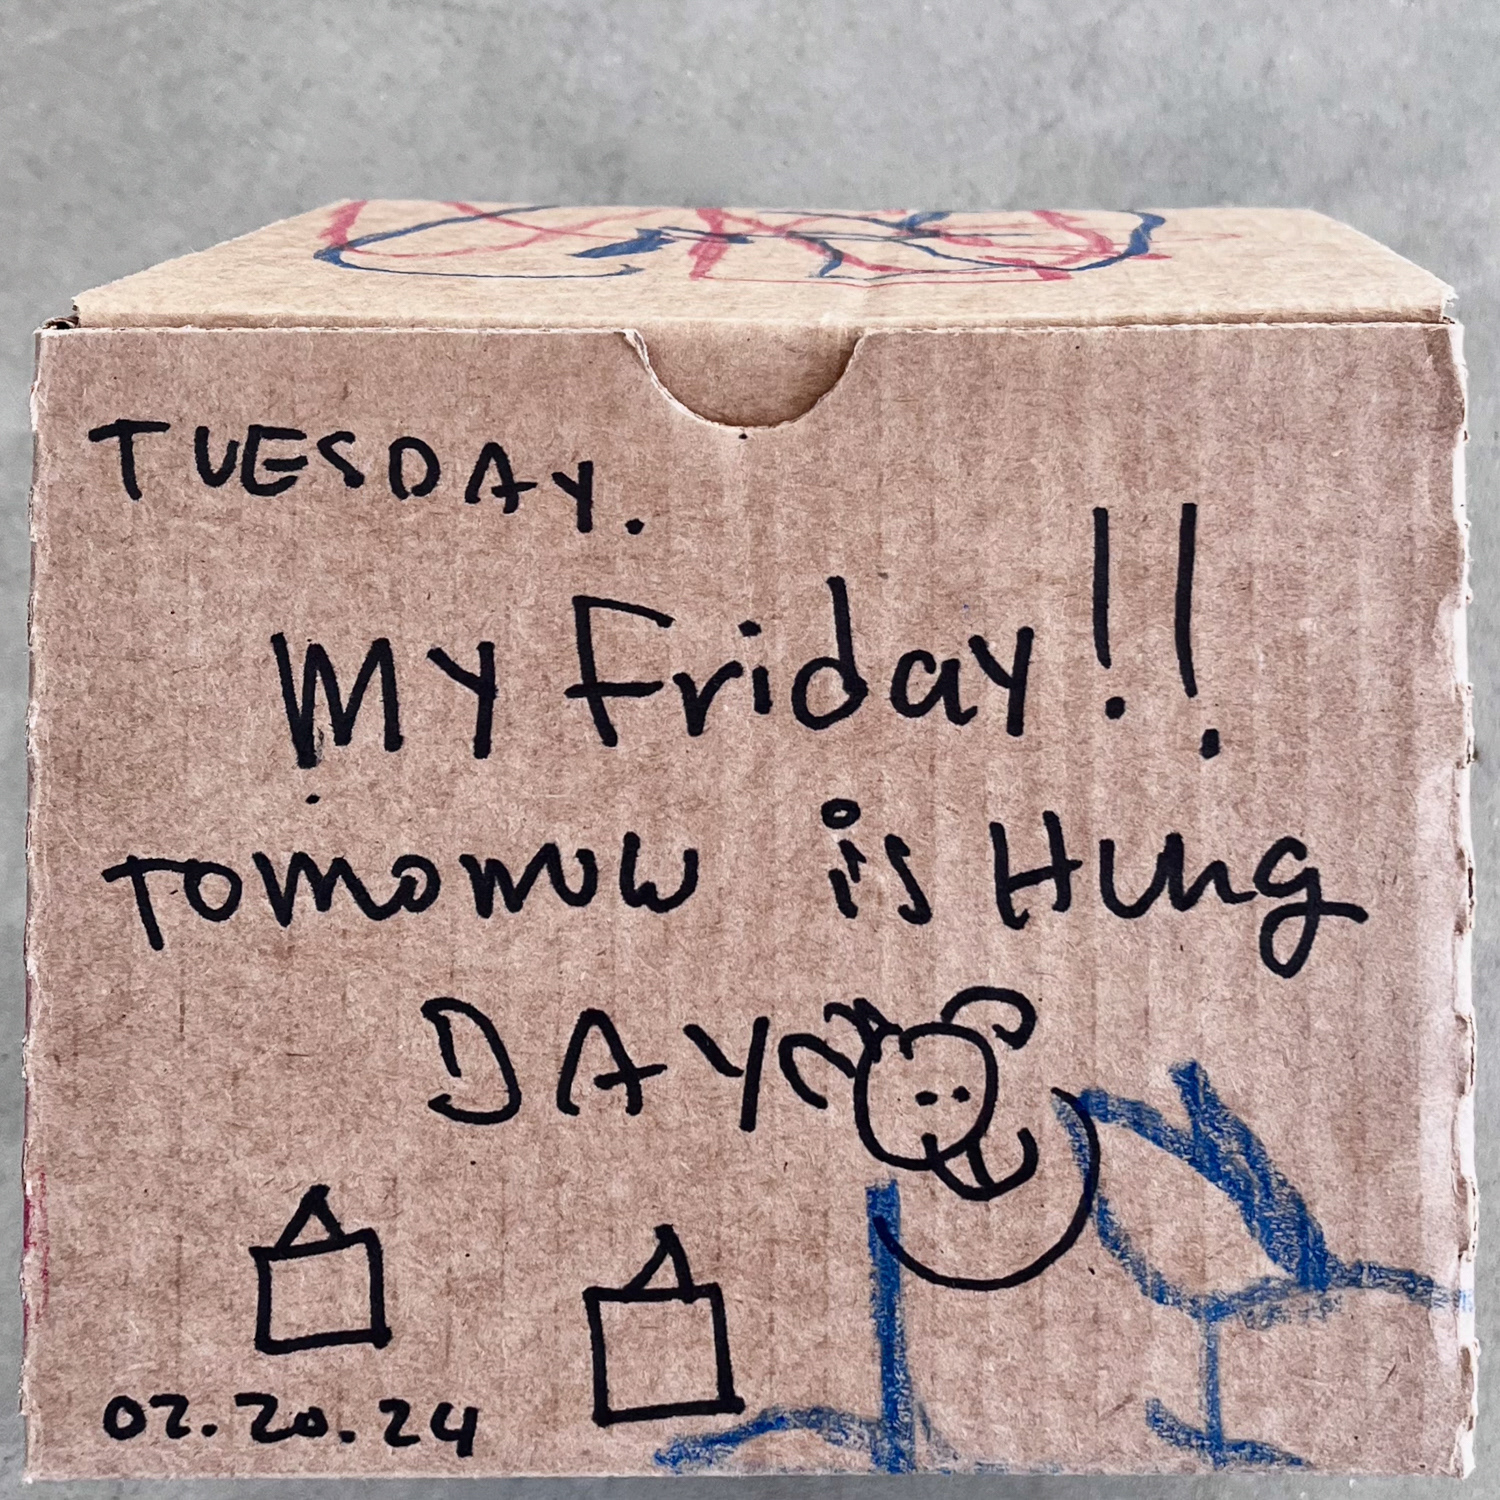 TUESDAY.
MY Friday!!
TOMOMOW is HUNG
DAY
02.20.24